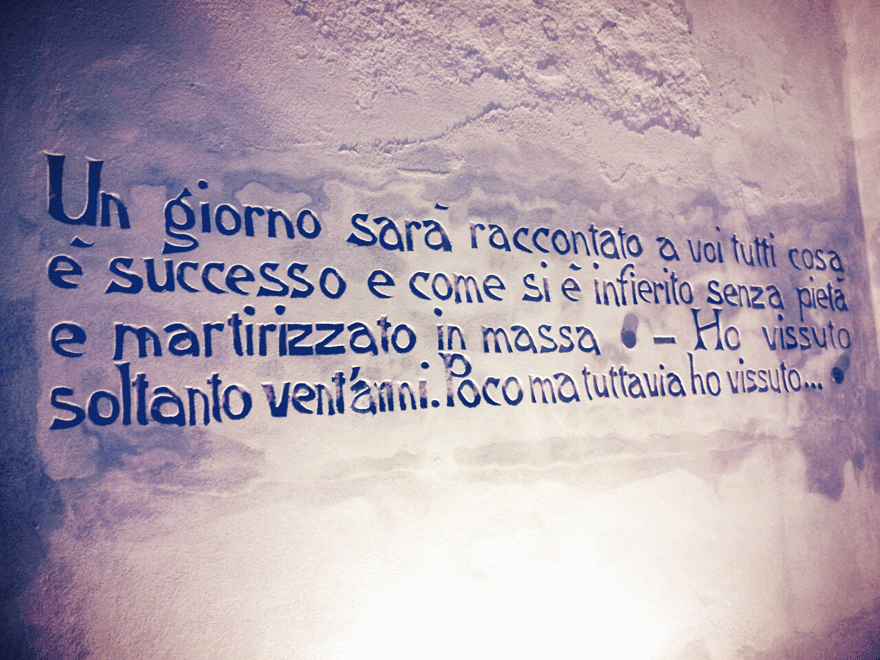 Un giorno sarà raccontato a voi tutti cosa
è successo e come si è infierito senza pietà
e martirizzato in massa • – Ho vissuto
soltanto vent'anni. Poco ma tuttavia ho vissuto... •